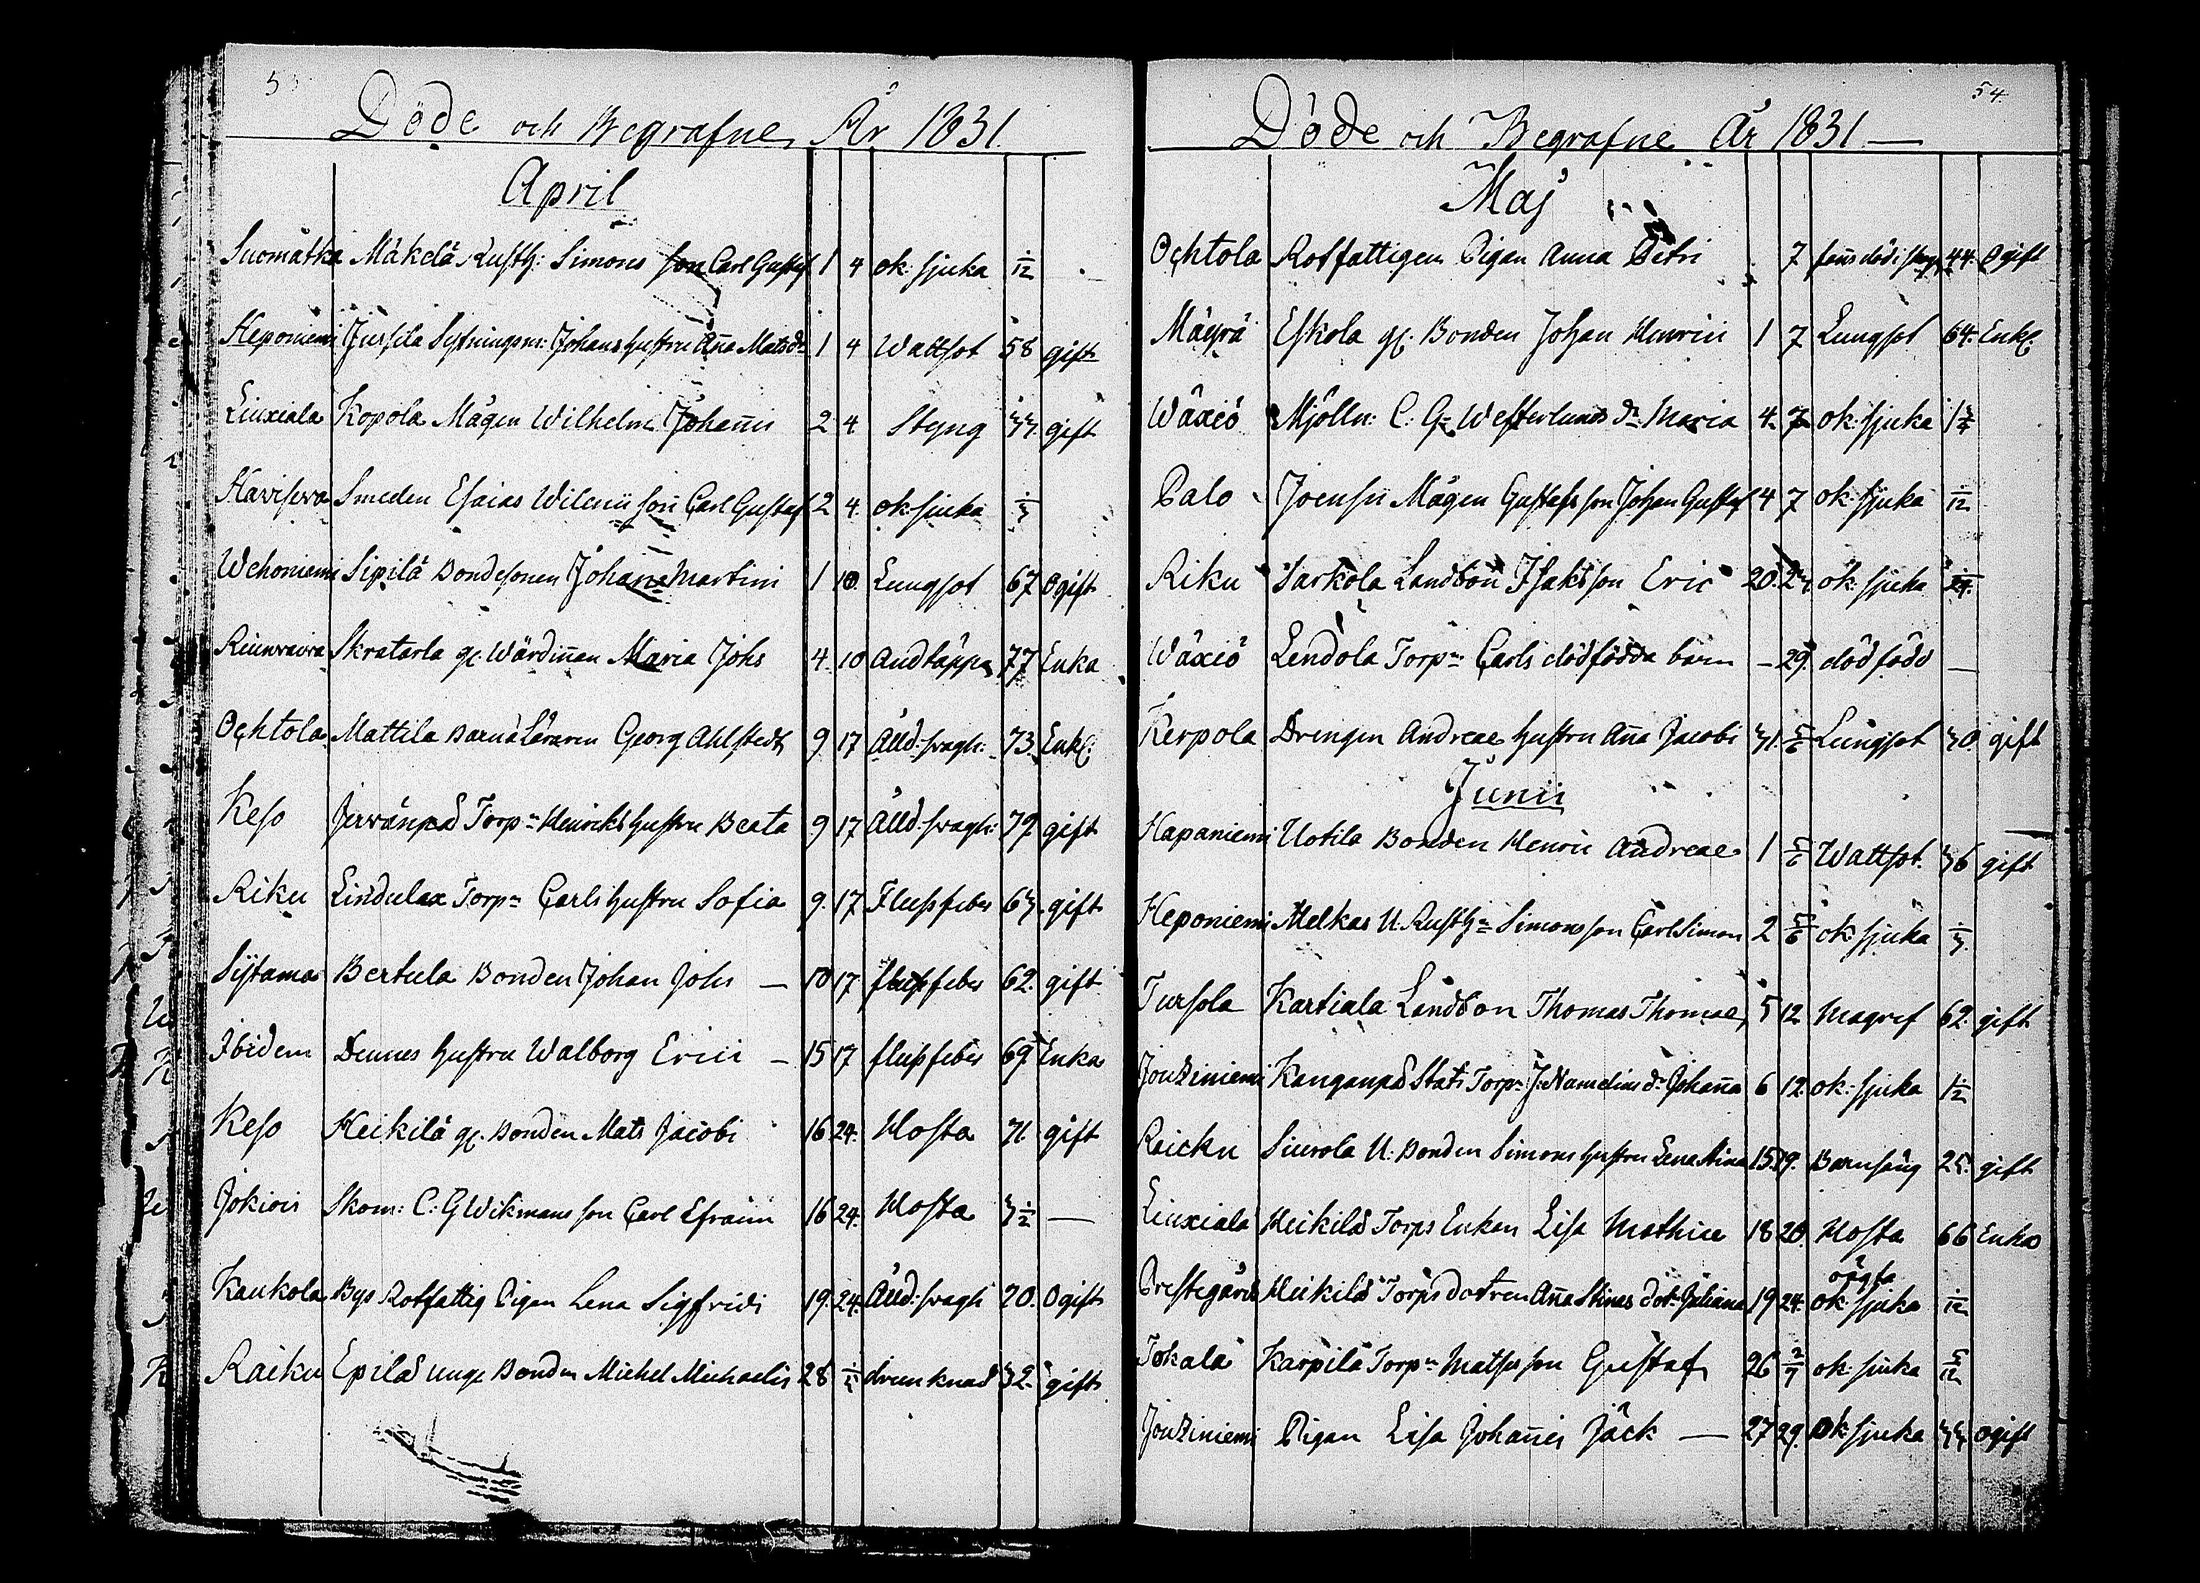 Döde och Begrafne År 1831.
April
Suomätkä Mäkelä Rusth: Simons son Carl Gustaf 1 4 ok: sjuka 1/12
Heponiemi Jussila Sytningsm: Johans hustru Aña Matsdr 1 4 Wattsot 58 gift
Liuxiala Kopola Mågen Wilhelm Johañis 2 4 Styng 33 gift
Havisevo Smeden Esaias Wilenii son Carl Gustaf 2 4. ok sjuka
Wehoniemi Sipilä Bondesonen Johan Martini 1 10. Lungsot 67 Ogift
Skratarla gl. Wärdiñan Maria Johs 4. 10 Andtäppa 77 Enka
Ochtola Mattila Barnaläraren Georg Ahlstedt 9 17 Ålld: svagh: 73. Enkl:
Keso Torpn Henriks hustru Beata 9 17 Ålld: svagh: 79. gift
Riku Lindulax Torpn Carls hustru Sofia 9. 17 Flussfeber 63. gift
Sytama Bertula Bonden Johan Johs — 10 17. flussfeber 62. gift
Ibidem Dennes hustru Walborg Erici — 15 17 flussfeber 69. Enka
Keso Heikilä gl. Bonden Mats Jacobi 16 24. Hosta 71 gift
Jokiois Skom: C: G Wikmans son Carl Efraim 16 24. Hosta 3 1/2 —
Kaukola Bys Rotfattig Pigan Lena Sigfridi 19. 24. Ålld: svagh 70. Ogift
Raiku Epilä unge Bonden Michel Michaelis 28 1/5 drunknad 32. gift
54.
Döde och Begrafne År 1831 —
Maj
Ochtola Rotfattigen Pigan Anna Petri 7 44. Ogift
Mäyrä Eskola gl. Bonden Johan Henrici 1 7 Lungsot 64. Enkl.
Wäxiö Mjölln: C: G: Westerlunds dr Maria 4. 7 ok: sjuka
Palo Joensu Mågen Gustafs son Johan Gustaf 4 7 ok: sjuka 1/12
Riku Sarkola Landbon Isaks son Eric 20. 23. ok: sjuka
Wäxiö Lendola Torpn Carls dödfödda barn — 29. dödföd —
Kerpola Drengen Andreae hustru Aña Jacobi 31. 5/6 Lungsot 30. gift
Junii
Hapaniemi Uotila Bonden Henric Andreae 1 5/6 Wattsot. 36 gift
Heponiemi Melkas U. Rusthn Simons son Carl Simon 2 5/6 ok: sjuka
Tursola Kartiala Landbon Thomas Thomae 5 12 Magref 62. gift
Jouziniemi Kangaspä Stats Torpn J: Namelins dr Johaña 6 12. ok: sjuka 1 1/2
Raicku Siurola U: Bonden Simons hustru Lena Stina 15. 19. Barnsäng 25. gift
Liuxiala Heikilä Torps Enkan Lisa Mathiae 18 20. Hosta 66 Enka
Prestegård Heikilä Torps dotren Aña Stinas dot: Juliana 19 24. oägta ok: sjuka 1/12
Tokala Karpilä Torpn Matses son Gustaf 26 3/7 ok: sjuka 5/12
Jouziniemi Pigan Lisa Johañis Jäck — 27 29. ok: sjuka 33 ogift